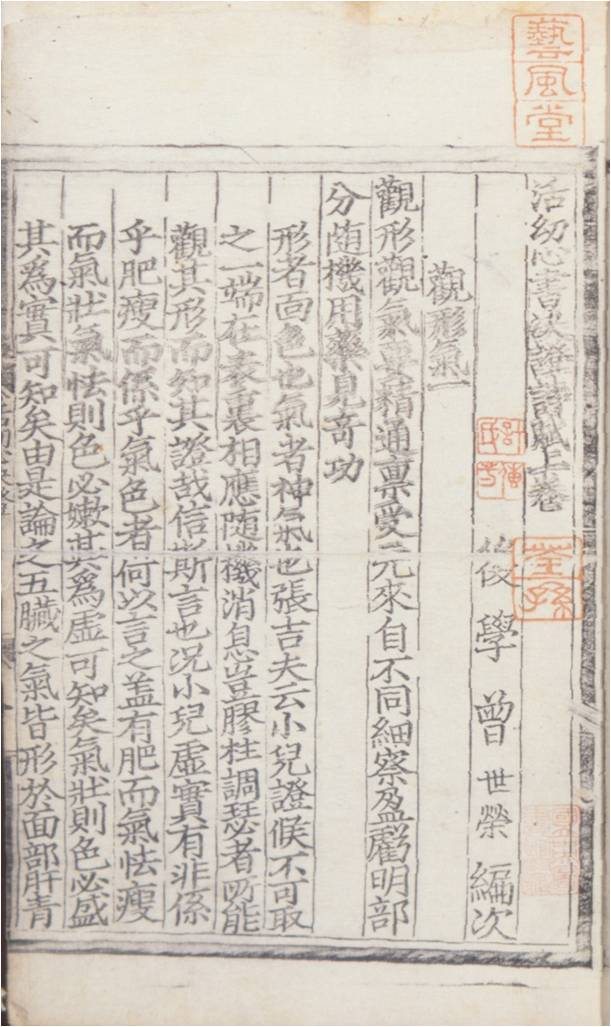 藝風堂
活幼心書決證詩賦上卷
後學曾世榮編次
荃孫
觀形氣一
觀形觀氣要精通稟受元來自不同細察盈虧明部
分随機用藥見奇功
形者面色也氣者神氣也張吉夫云小兒證候不可取
之一端在表裏相應随機消息豈膠柱調瑟者所能
觀其形而知其證哉信斯言也况小兒虛實有非係
乎肥瘦而係乎氣色者何以言之盖有肥而氣怯瘦
而氣壯氣怯則色必嫩其爲虛可知矣氣壯則色必盛
其爲實可知矣由是論之五臟之氣皆形於面部肝青